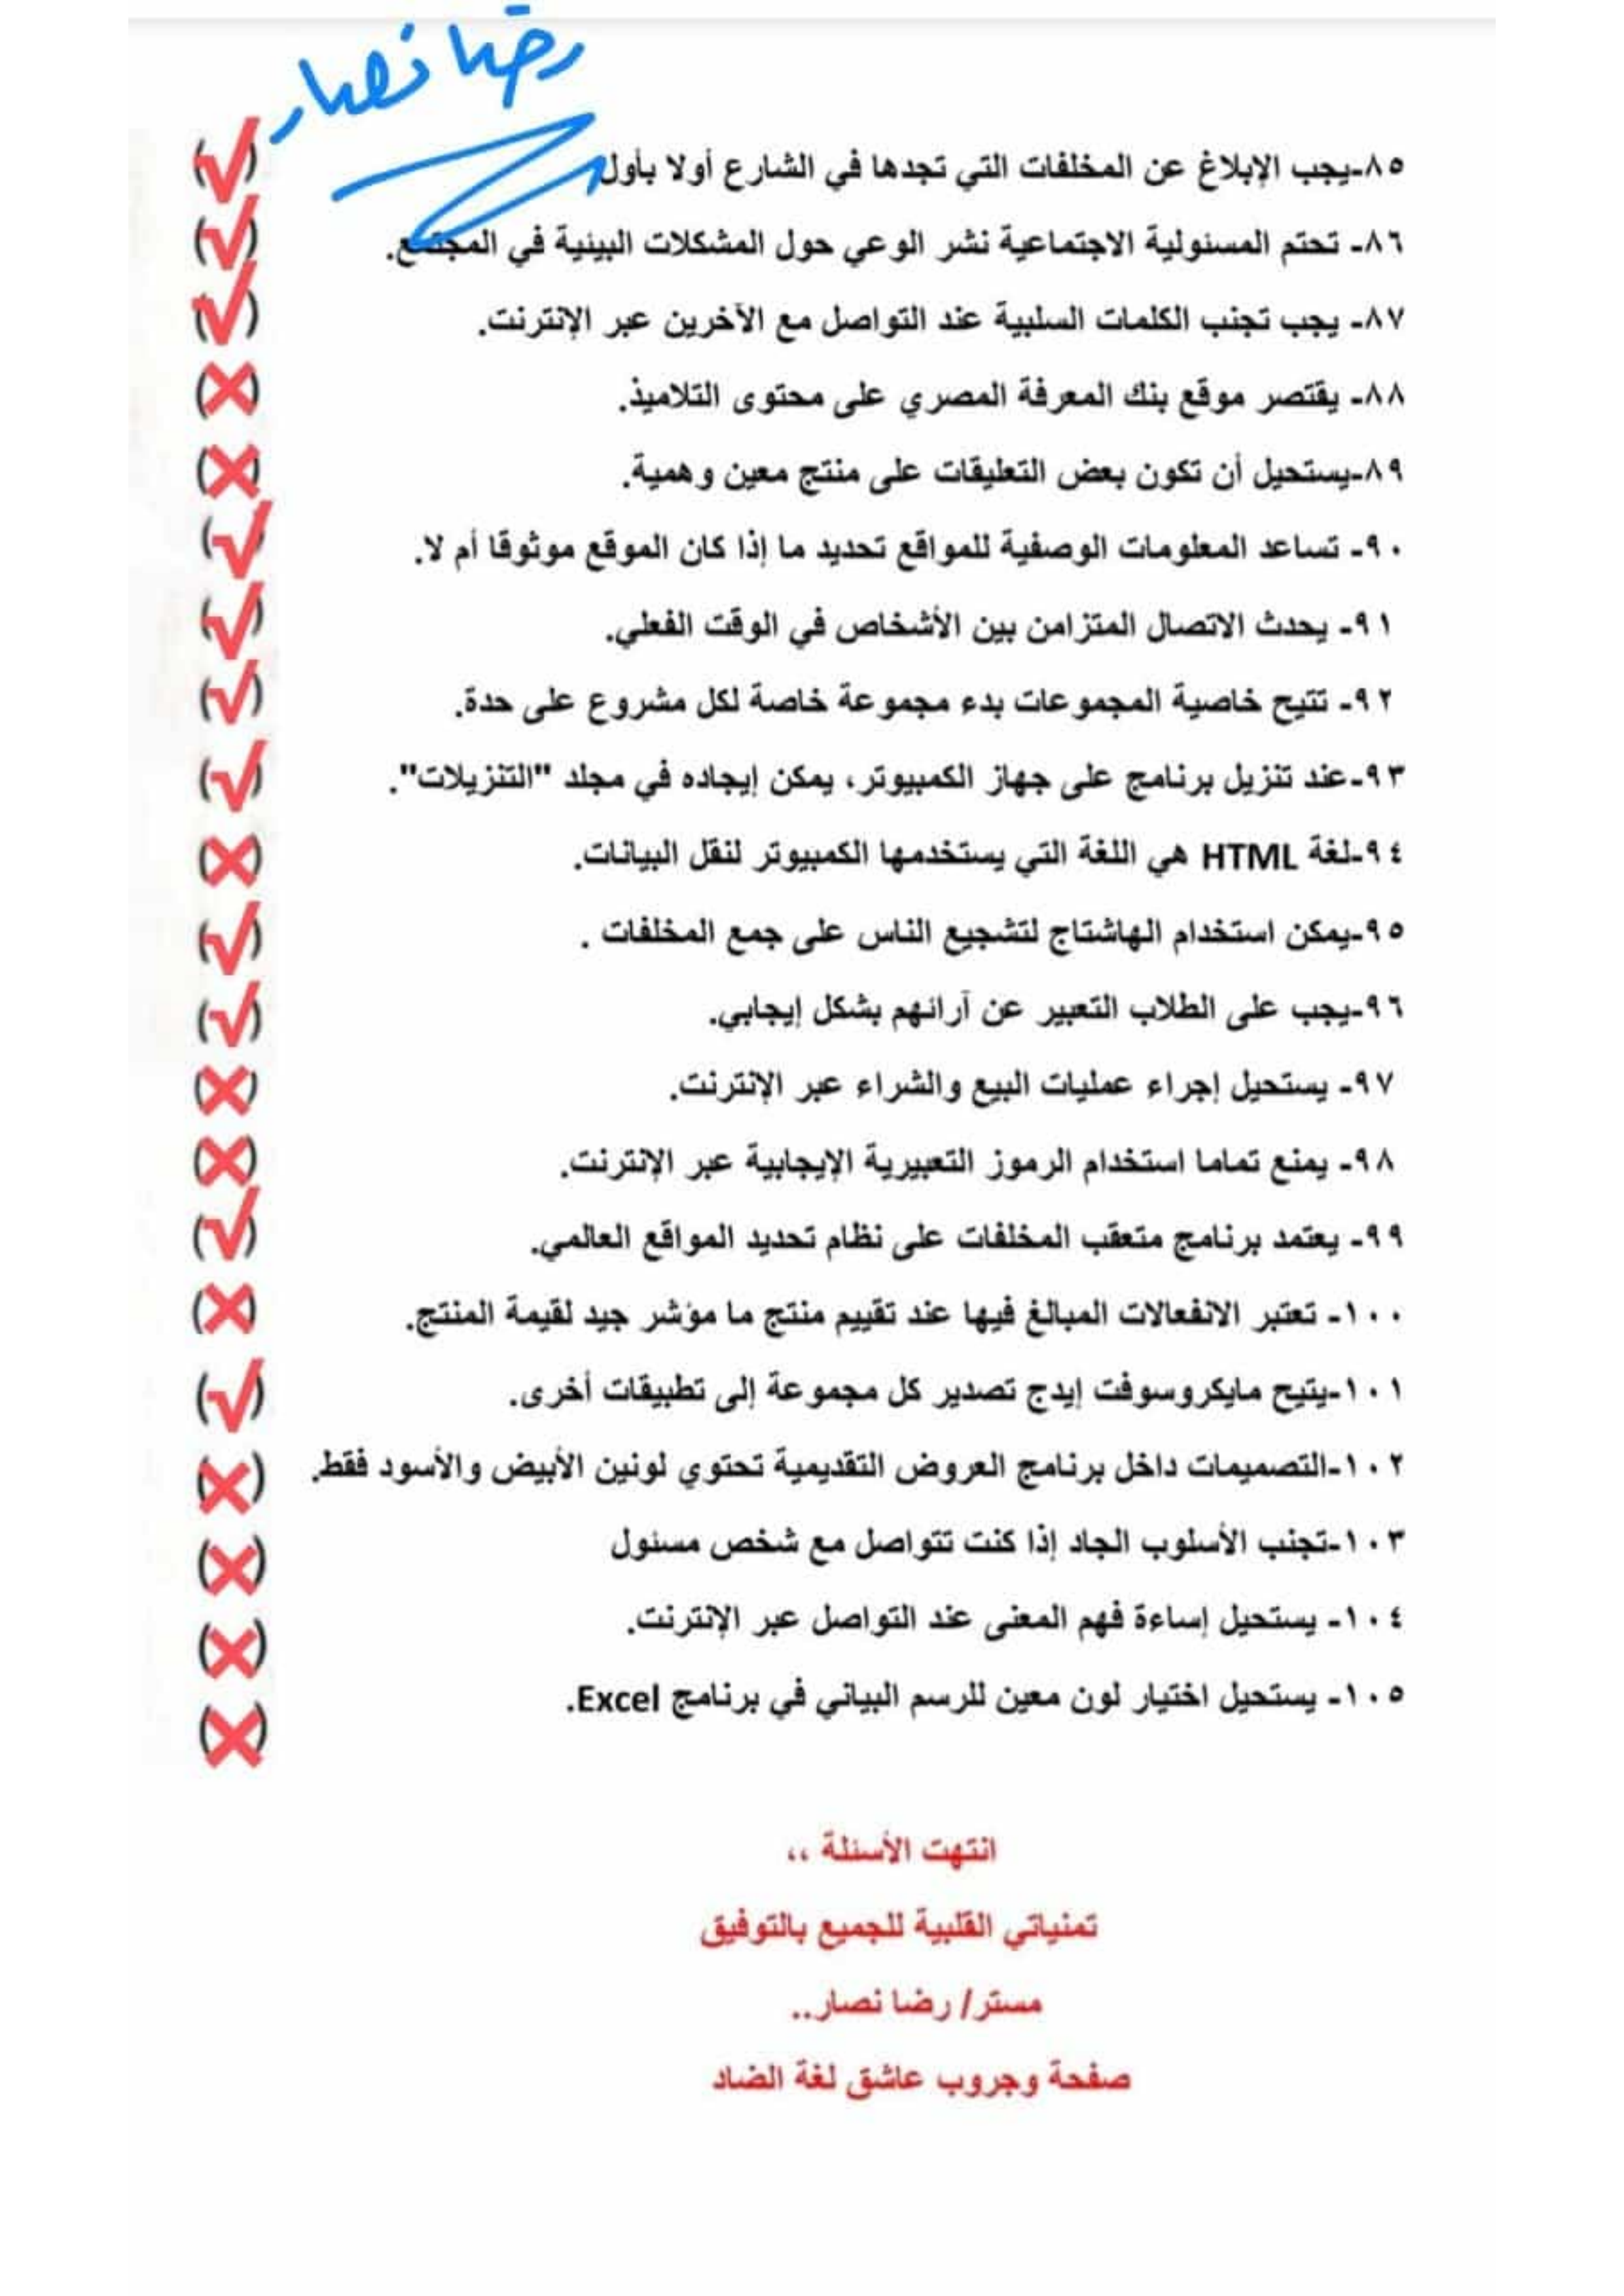 رضا نصار
٨٥-يجب الإبلاغ عن المخلفات التي تجدها في الشارع أولا بأول (√)
٨٦- تحتم المسئولية الاجتماعية نشر الوعي حول المشكلات البيئية في المجتمع. (√)
٨٧- يجب تجنب الكلمات السلبية عند التواصل مع الآخرين عبر الإنترنت. (√)
٨٨- يقتصر موقع بنك المعرفة المصري على محتوى التلاميذ. (×)
٨٩-يستحيل أن تكون بعض التعليقات على منتج معين وهمية. (×)
٩٠- تساعد المعلومات الوصفية للمواقع تحديد ما إذا كان الموقع موثوقا أم لا. (√)
٩١- يحدث الاتصال المتزامن بين الأشخاص في الوقت الفعلي. (√)
٩٢- تتيح خاصية المجموعات بدء مجموعة خاصة لكل مشروع على حدة. (√)
٩٣-عند تنزيل برنامج على جهاز الكمبيوتر، يمكن إيجاده في مجلد "التنزيلات". (√)
٩٤-لغة HTML هي اللغة التي يستخدمها الكمبيوتر لنقل البيانات. (×)
٩٥-يمكن استخدام الهاشتاج لتشجيع الناس على جمع المخلفات . (√)
٩٦-يجب على الطلاب التعبير عن آرائهم بشكل إيجابي. (√)
٩٧- يستحيل إجراء عمليات البيع والشراء عبر الإنترنت. (×)
٩٨- يمنع تماما استخدام الرموز التعبيرية الإيجابية عبر الإنترنت. (×)
٩٩- يعتمد برنامج متعقب المخلفات على نظام تحديد المواقع العالمي. (√)
١٠٠- تعتبر الانفعالات المبالغ فيها عند تقييم منتج ما مؤشر جيد لقيمة المنتج. (×)
١٠١-يتيح مايكروسوفت إيدج تصدير كل مجموعة إلى تطبيقات أخرى. (√)
١٠٢-التصميمات داخل برنامج العروض التقديمية تحتوي لونين الأبيض والأسود فقط. (×)
١٠٣-تجنب الأسلوب الجاد إذا كنت تتواصل مع شخص مسئول (×)
١٠٤- يستحيل إساءة فهم المعنى عند التواصل عبر الإنترنت. (×)
١٠٥- يستحيل اختيار لون معين للرسم البياني في برنامج Excel. (×)
انتهت الأسئلة ،،
تمنياتي القلبية للجميع بالتوفيق
مستر/ رضا نصار..
صفحة وجروب عاشق لغة الضاد